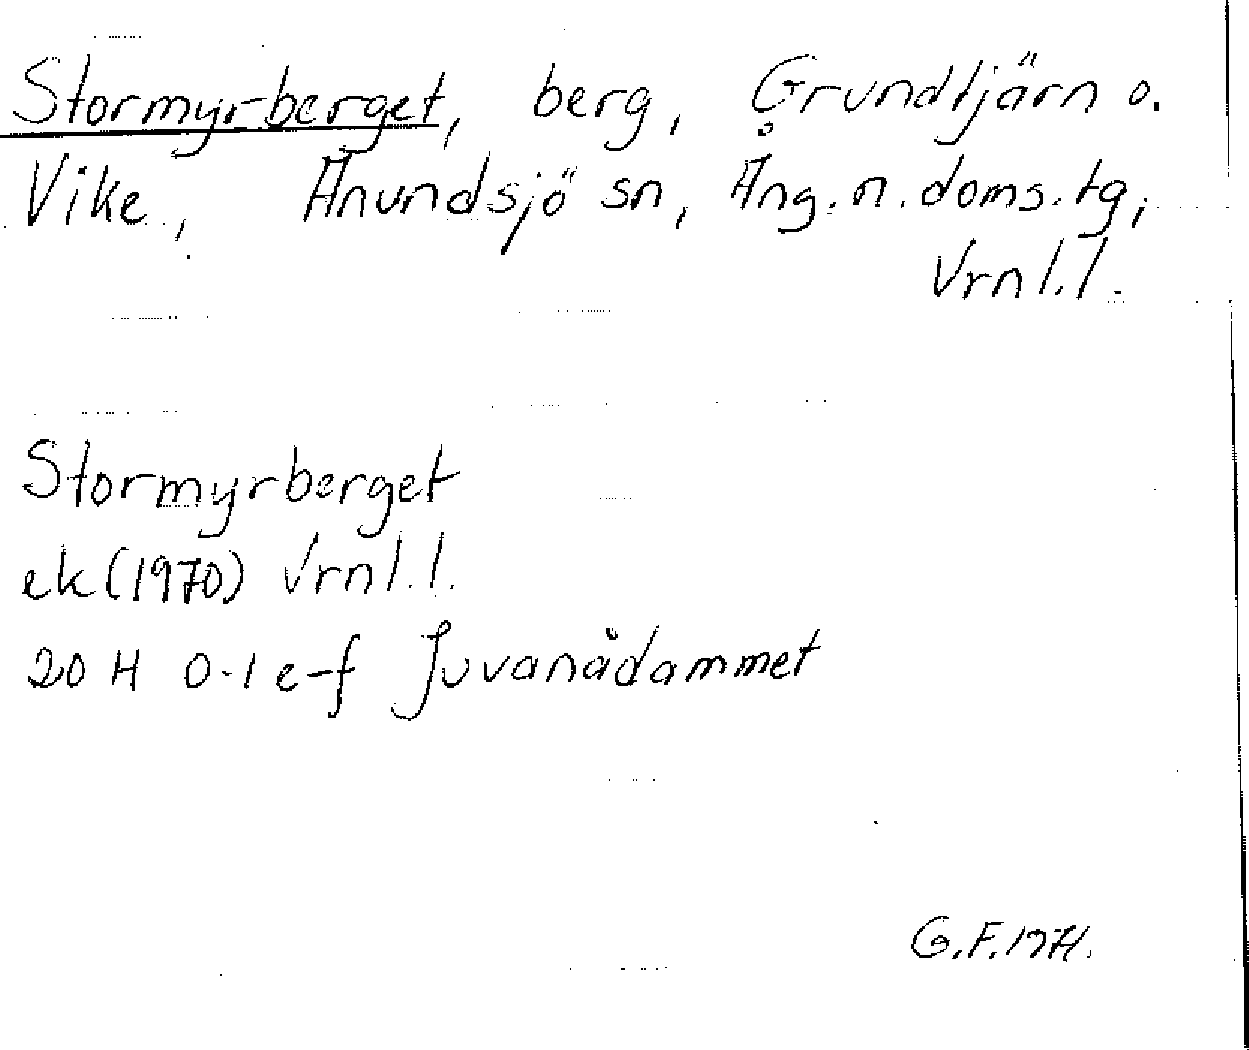 Stormyrberget, berg, Grundtjärn o.
Vike, Anundsjö sn, Ång. n. doms. tg,
Vrnl.l.
Stormyrberget
ek (1970) Vrnl.l.
20 H 0-1 e-f Juvanådammet
G.F. 1971.